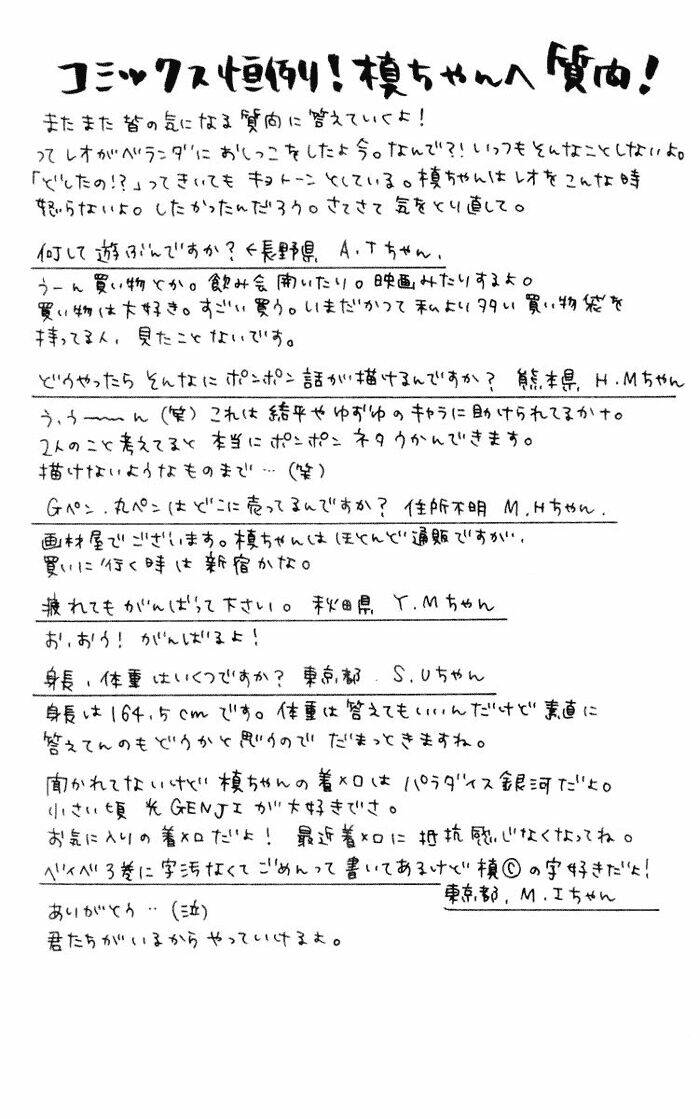 コミックス恒例！槙ちゃんへ質問！
またまた皆の気になる質問に答えていくよ！
ってレオがベランダにおしっこをしたよ今。なんで?!いっつもそんなことしないよ。
「どしたの!?」ってきいてもキョトーンとしている。槙ちゃんはレオをこんな時
怒らないよ。したかったんだろう。さてさて気をとり直して。
何して遊ぶんですか？←長野県 A.Tちゃん.
うーん買い物とか。飲み会開いたり。映画みたりするよ。
買い物は大好き。すごい買う。いまだかつて私より多い買い物袋を
持ってる人、見たことないです。
どうやったらそんなにポンポン話が描けるんですか？ 熊本県 H.Mちゃん
う、う〜〜ん（笑）これは綺平やゆずゆのキャラに助けられてるかナ。
2人のこと考えてると本当にポンポンネタうかんできます。
描けないようなものまで…（笑）
Gペン、丸ペンはどこに売ってるんですか？ 住所不明 M.Hちゃん.
画材屋でございます。槙ちゃんはほとんど通販ですが、
買いに行く時は新宿かな。
疲れてもがんばって下さい。 秋田県 Y.Mちゃん
お、おう！がんばるよ！
身長、体重はいくつですか？ 東京都. S.Uちゃん
身長は164.5cmです。体重は答えてもいいんだけど素直に
答えてんのもどうかと思うのでだまっときますね。
聞かれてないけど槙ちゃんの着メロはパラダイス銀河だよ。
小さい頃光GENJIが大好きでさ。
お気に入りの着メロだよ！ 最近着メロに抵抗感じなくなってね。
ベイベ3巻に字汚なくてごめんって書いてあるけど槙©の字好きだよ！
東京都. M.Iちゃん
ありがとう‥（泣）
君たちがいるからやっていけるよ。